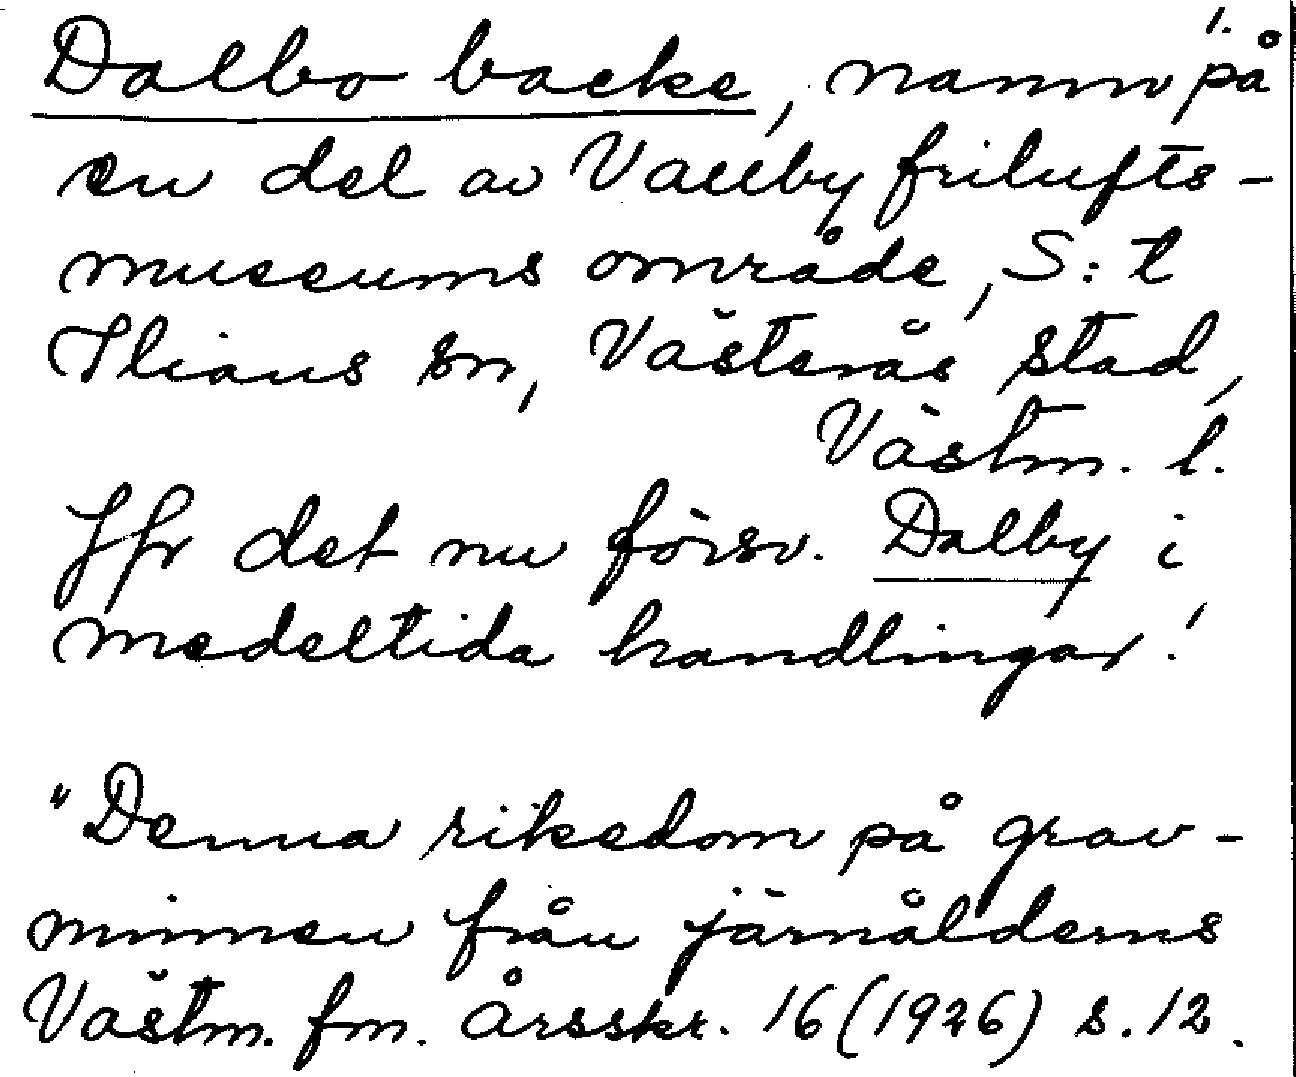 1.
Dalbo backe, namn på
en del av Vallby frilufts-
museums område, S:t
Ilians sn, Västerås stad,
Västm. l.
Jfr det nu försv. Dalby i
medeltida handlingar!
"Denna rikedom på grav-
minnen från järnålderns
Västm. fm. Årsskr. 16 (1926) s. 12.